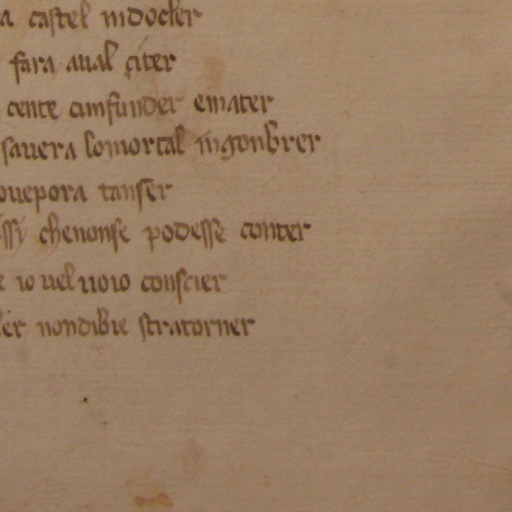 a castel indocler
fara aual çiter
cente cunfunder emater
sauera lomortal ingonbrer
ouepora tanser
issi chenonse podesse conter
e io uel uoio conscier
ler nondibie stratorner